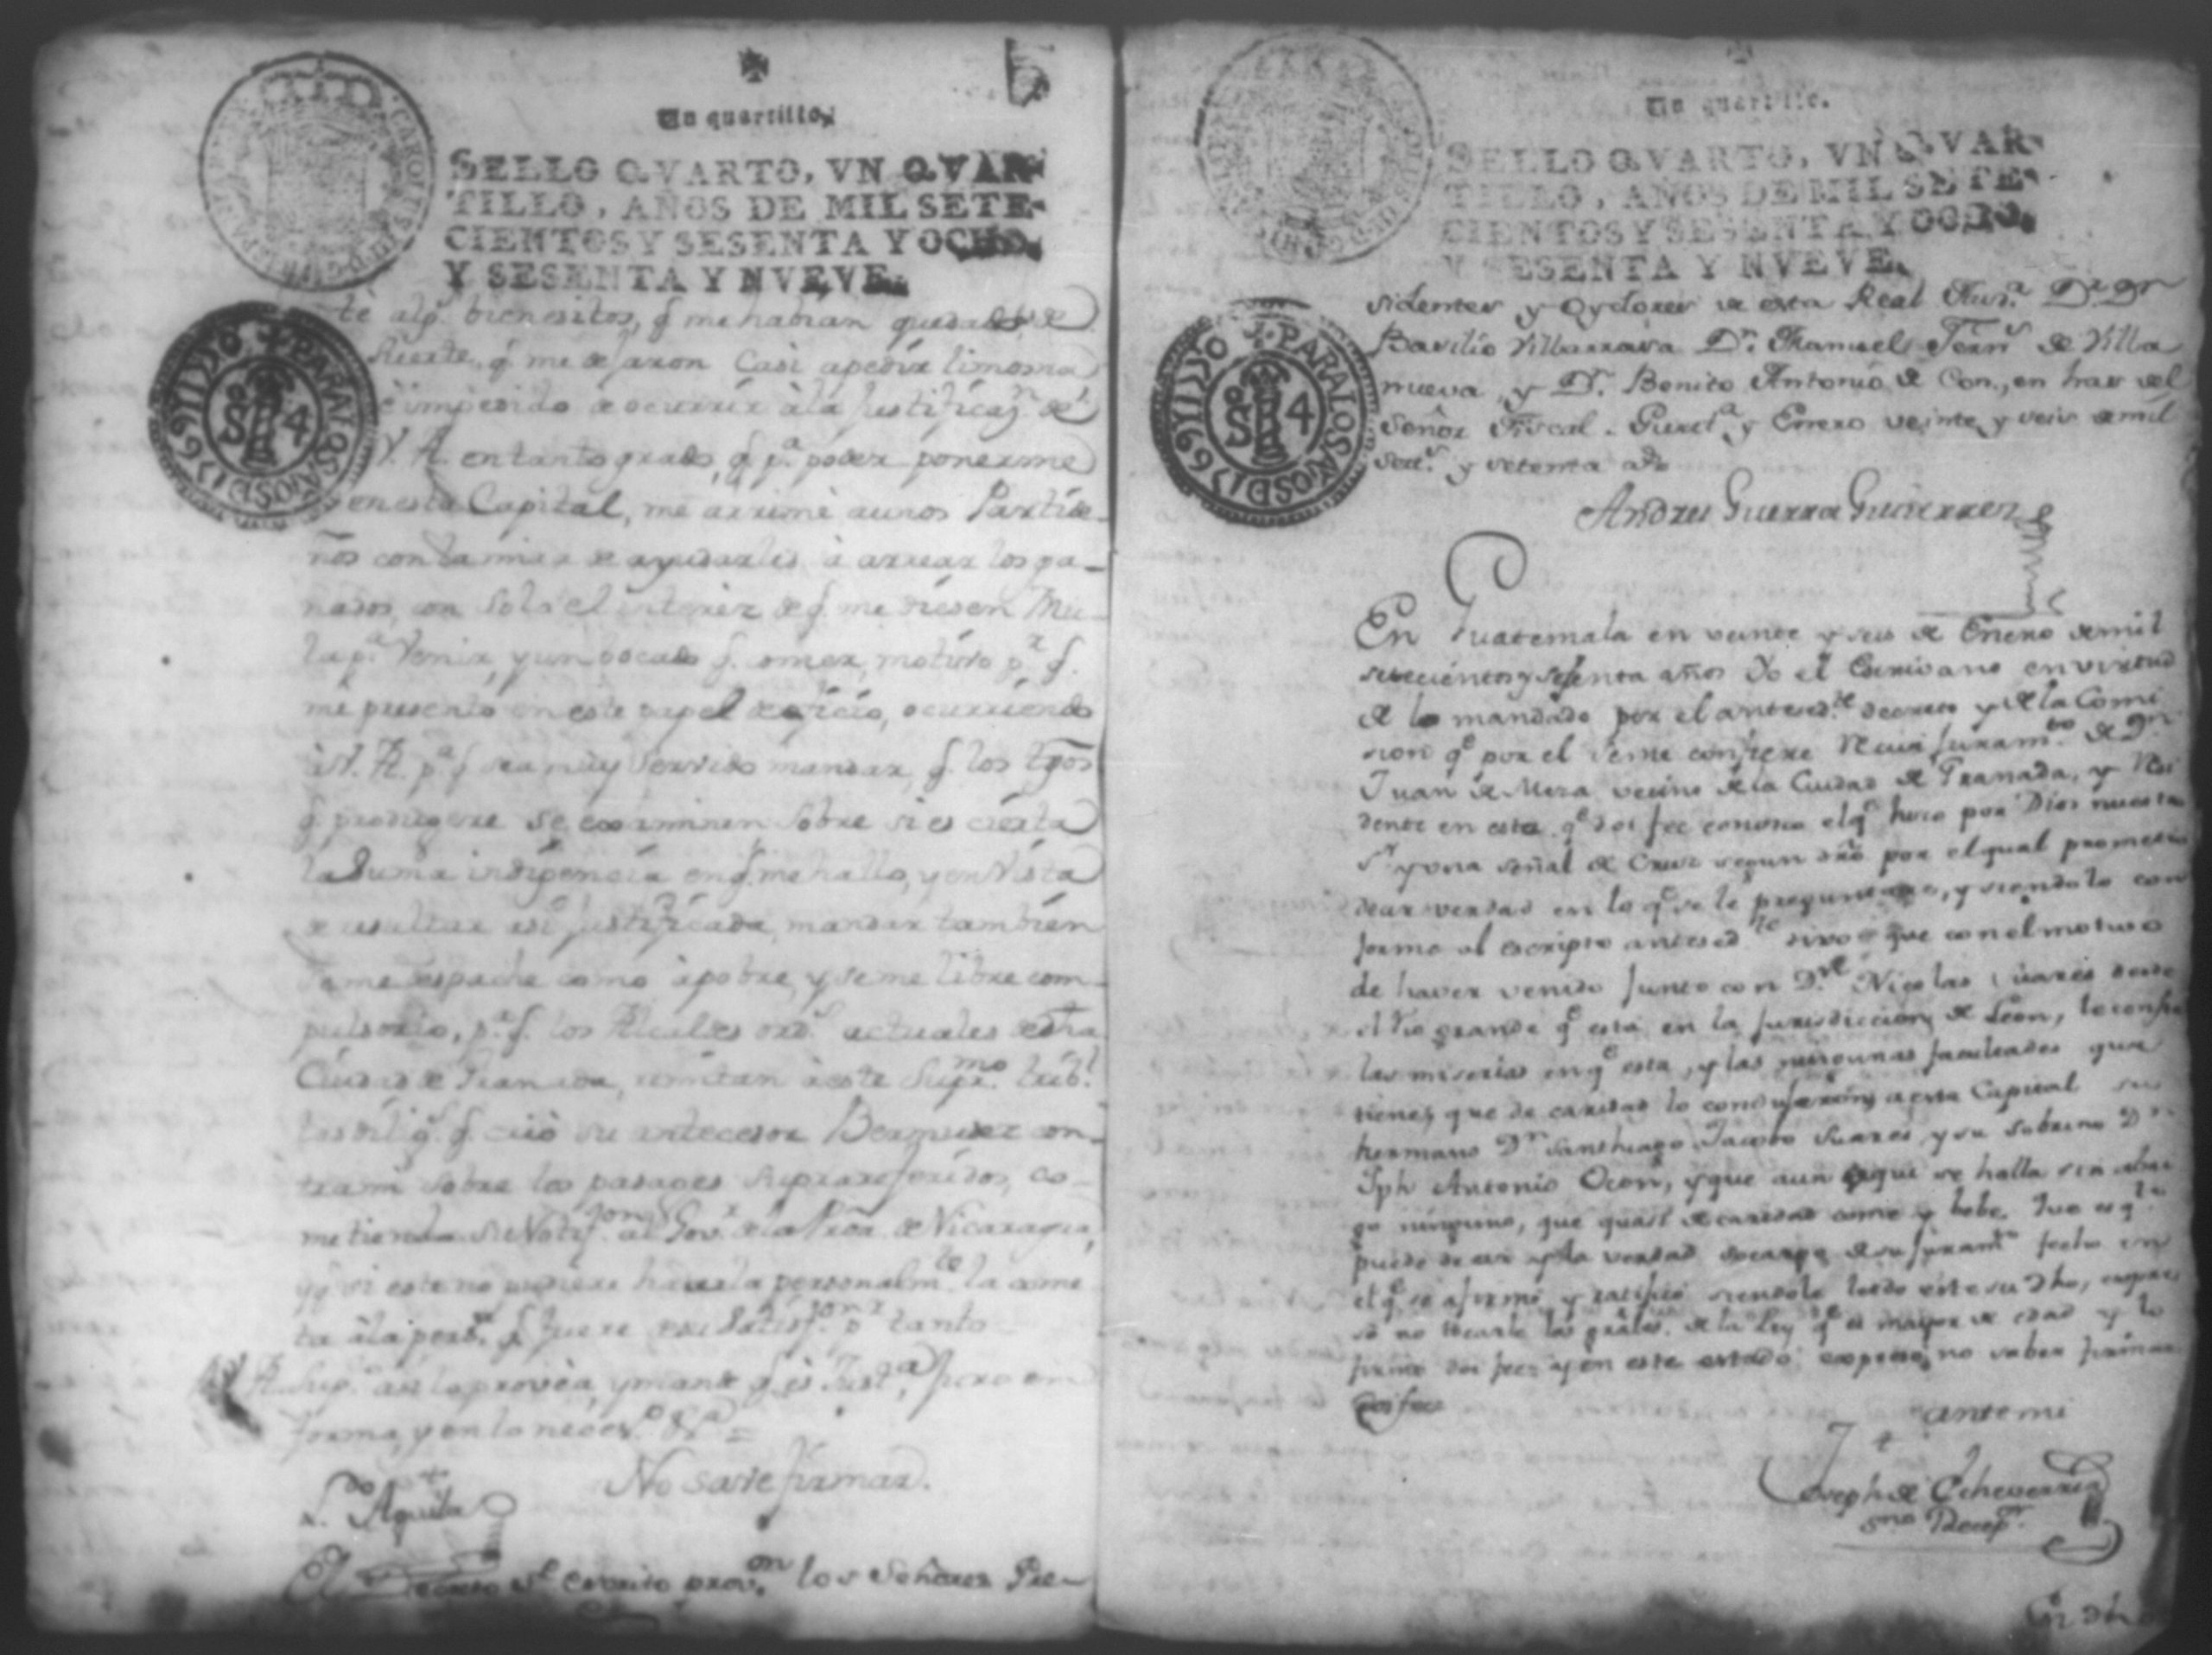 5
Un quartillo.
SELLO QVARTO, VN QVAR-
TILLO, AÑOS DE MIL SETE-
CIENTOS Y SESENTA Y OCHO,
Y SESENTA Y NVEVE.
CAROLUS III D G HISPA
PARA LOS AÑOS D 1769 I IDDO
S 4
te alg.s bienesitos, q. me havian quedado, de
suerte, q. me dejaron casi a pedir limosna
è impedido de ocurrir à la justificaz.n de
V. A. en tanto grado, q. p.a poder ponerme
en esta Capital, me arrimé a unos Partide-
ños con la mira de ayudarles à arrear los ga-
nados, con solo el interez de q. me diesen Mu-
la p.a venir, y un bocado q. comer, motivo p.r q.
me presento en este papel de oficio, ocurriendo
à V. A. p.a q. sea muy servido mandar, q. los tgos
q. produgere se examinen sobre si es cierta
la suma indigencia en q. me hallo, y en vista
de resultar asi justificada, mandar tambien
se me despache como à pobre, y se me libre com-
pulsorio, p.a q. los Alcaldes ord.s actuales de dha
Ciudad de Granada, remitan à este Supr.mo trib.l
las dilig.s q. crió su antecesor Bermudez con-
tra mi sobre los pasages suprareferidos, co-
metiendo su Notif.on al Gov.r de la Prov.a de Nicaragua,
y q. si este no pudiere hacerla personalm.te la come-
ta à la pers.a q. fuere de su satisf.on p.r tanto
A V. A. sup.co asi lo provéa, y mande q. es Just.a, juro en
forma, y en lo neces.o &.a =
No save firmar.
L.do Aguila
El Decreto del escrito prov.on los Señores Pre-
Un quartillo.
SELLO QVARTO, VN QVAR-
TILLO, AÑOS DE MIL SETE-
CIENTOS Y SESENTA Y OCHO,
Y SESENTA Y NVEVE.
PARA LOS AÑOS D 1769 I IDDO
S 4
sidentes y Oydores de esta Real Aud.a D.n
Basilio Villarrasa D.n Manuel Fern.s de Villa
nueva, y D.n Benito Antonio de Con, en haz del
Señor Fiscal. Guat.a y Enero veinte y seis de mil
set.s y setenta a.s
Andres Guerra Gutierrez
En Guatemala en veinte y seis de Enero de mil
setecientos y setenta años Yo el Escrivano en virtud
de lo mandado por el anteced.te decreto y de la Comi
sion q.e por el seme confiere Reciví juram.to de D.n
Juan de Mora vecino de la Ciudad de Granada, y Resi
dente en esta q.e doi fee conosco el q.e hizo por Dios nuestro
S.r y una señal de Cruz segun dro por el qual prometio
decir verdad en lo q.e se le preguntare, y siendolo con
forme al escripto anteced.te dixo: que con el motivo
de haver venido junto con D.n Nicolas Suares desde
el rio grande q.e esta en la jurisdiccion de Leon, le consta
las miserias en q.e esta, y las ningunas facultades que
tiene, que de caridad lo condujeron a esta Capital su
hermano D.n Santhiago Jacobo Suares y su sobrino D.n
Jph Antonio Ocon, y que aun aqui se halla sin abri
go ninguno, que quasi de caridad come y bebe. Que es q.to
puede decir y la verdad so cargo de su juram.to fecho en
el q.e se afirmó y ratificó siendole leido este su dho, expre
só no tocarle las grales. de la Ley q.e es mayor de edad y lo
firmó doi fee; y en este estado expresó no saber firmar
doi fee
ante mi
Joseph de Echeverria
Sno Recep.r